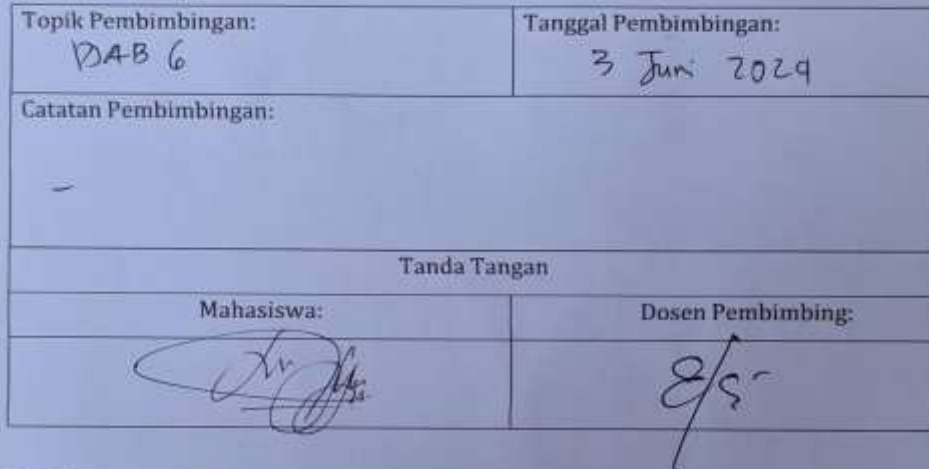 Topik Pembimbingan:
BAB 6
Tanggal Pembimbingan:
3 Juni 2024
Catatan Pembimbingan:
-
Tanda Tangan
Mahasiswa:
Dosen Pembimbing: